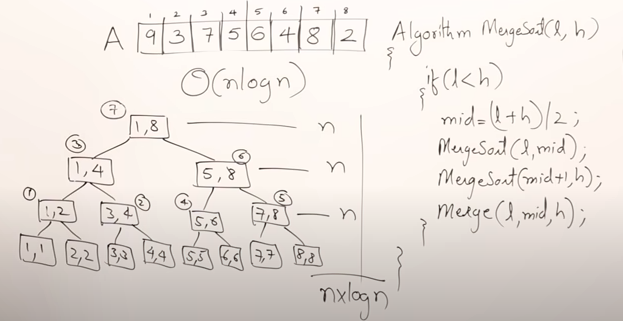 1 2 3 4 5 6 7 8
A 9 3 7 5 6 4 8 2
O(nlogn)
7
1,8 n
3 6
1,4 5,8 n
1 2 4 5
1,2 3,4 5,6 7,8 n
1,1 2,2 3,3 4,4 5,5 6,6 7,7 8,8
nxlogn
Algorithm MergeSort(l, h)
{
if(l<h)
{
mid=(l+h)/2;
MergeSort(l,mid);
MergeSort(mid+1,h);
Merge(l,mid,h);
}
}